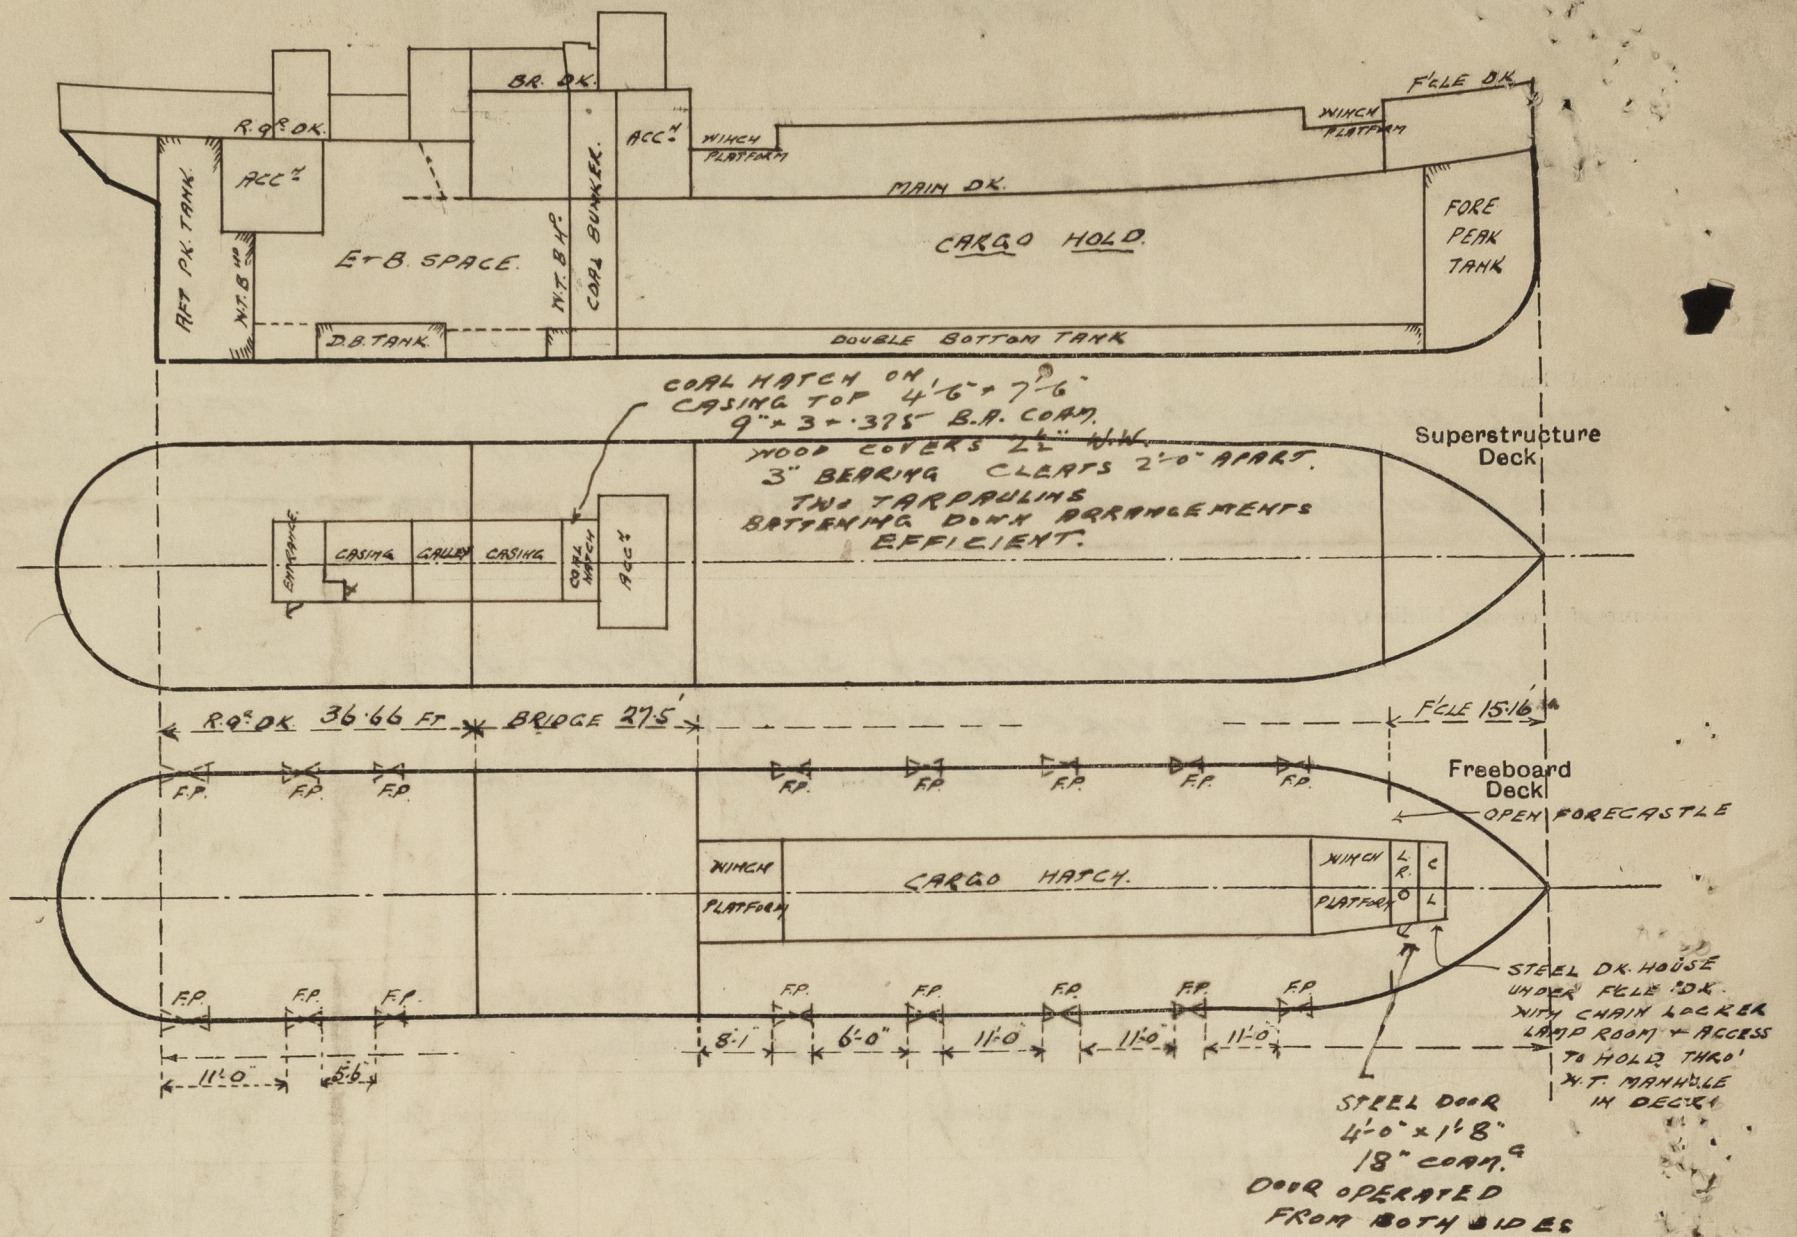 BR. DK.
F'CLE DK.
R.QR. DK.
ACCN
WINCH
PLATFORM
WINCH
PLATFORM
ACCN
MAIN DK.
AFT PK. TANK.
W.T.BHD
E+B. SPACE.
W.T.BHD.
COAL BUNKER.
CARGO HOLD.
FORE
PEAK
TANK
D.B. TANK.
DOUBLE BOTTOM TANK
COAL HATCH ON
CASING TOP 4'-6" × 7'-6"
9" × 3 × .375 B.A. COAM.
WOOD COVERS 2½" W.W.
3" BEARING CLEATS 2'-0" APART.
TWO TARPAULINS
BATTENING DOWN ARRANGEMENTS
EFFICIENT.
Superstructure
Deck
ENTRANCE.
CASING
GALLEY
CASING
COAL
HATCH
ACCN
R.QR. DK. 36.66 FT
BRIDGE 27.5'
F'CLE 15.16'
F.P.
F.P.
F.P.
F.P.
F.P.
F.P.
F.P.
F.P.
Freeboard
Deck
OPEN FORECASTLE
WINCH
PLATFORM
CARGO HATCH.
WINCH
PLATFORM
L.
R.
O
C
L
F.P.
F.P.
F.P.
F.P.
F.P.
F.P.
F.P.
F.P.
11'-0"
5-6
8-1
6'-0"
11'-0
11'-0"
11'-0
STEEL DK. HOUSE
UNDER F'CLE DK.
WITH CHAIN LOCKER
LAMP ROOM + ACCESS
TO HOLD THRO'
W.T. MANHOLE
IN DECK
STEEL DOOR
4'-0" × 1'-8"
18" COAM.G
DOOR OPERATED
FROM BOTH SIDES